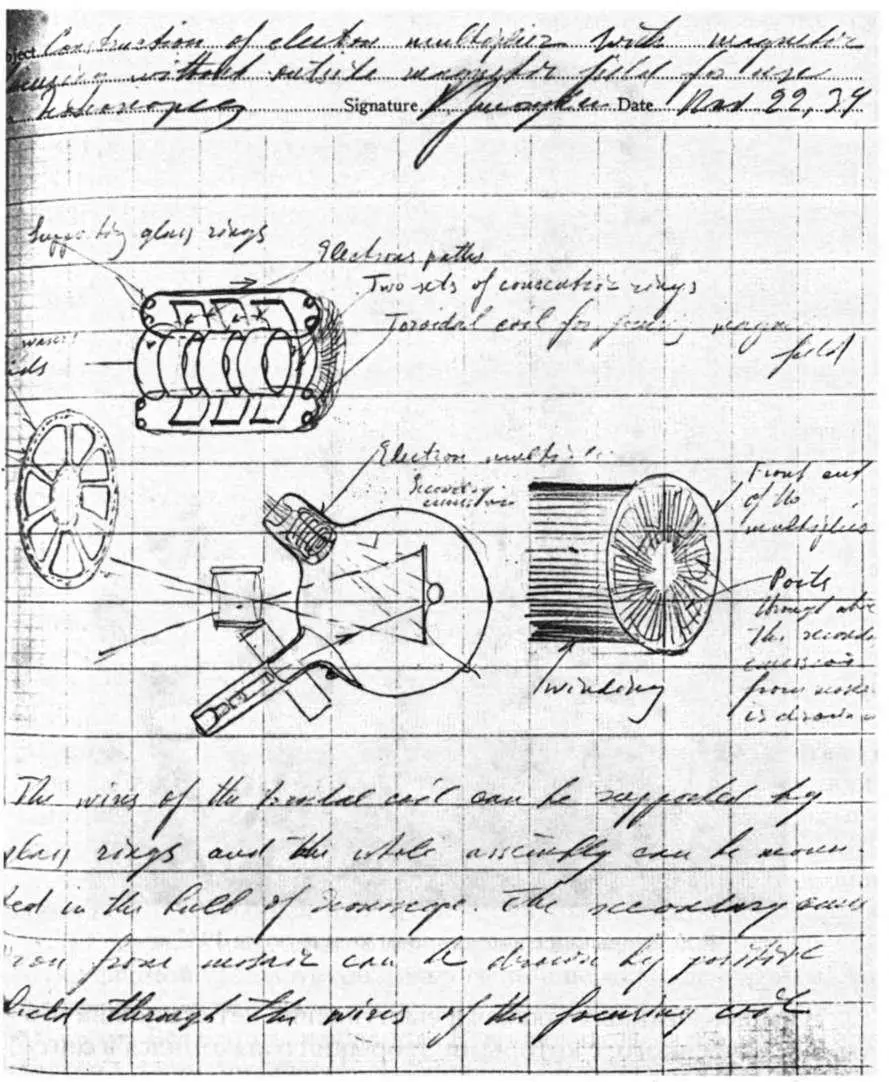 Construction of electron multiplier with magnetic
focusing without outside magnetic field for use
Signature Date 22, 34
Supporting glass rings
Electrons paths
Two sets of concentric rings
Toroidal coil for magn
field
Electron multi
Secondary
Front end
of the
multiplier
Ports
through
the second
emission
from
is drawn
Winding
The wires of the toroidal coil can be supported by
glass rings and the whole assembly can be moun
ted in the bulb of iconoscope. The secondary emis
sion from mosaic can be drawn by positive
field through the wires of the focusing coil